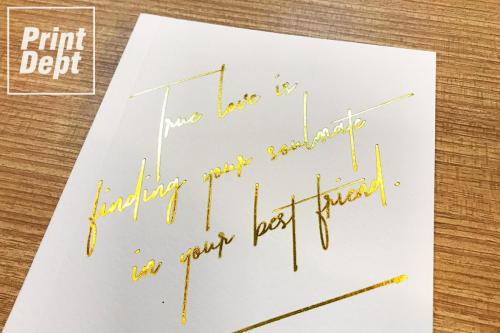 Print
Dept
True love is
finding your soulmate
in your best friend.